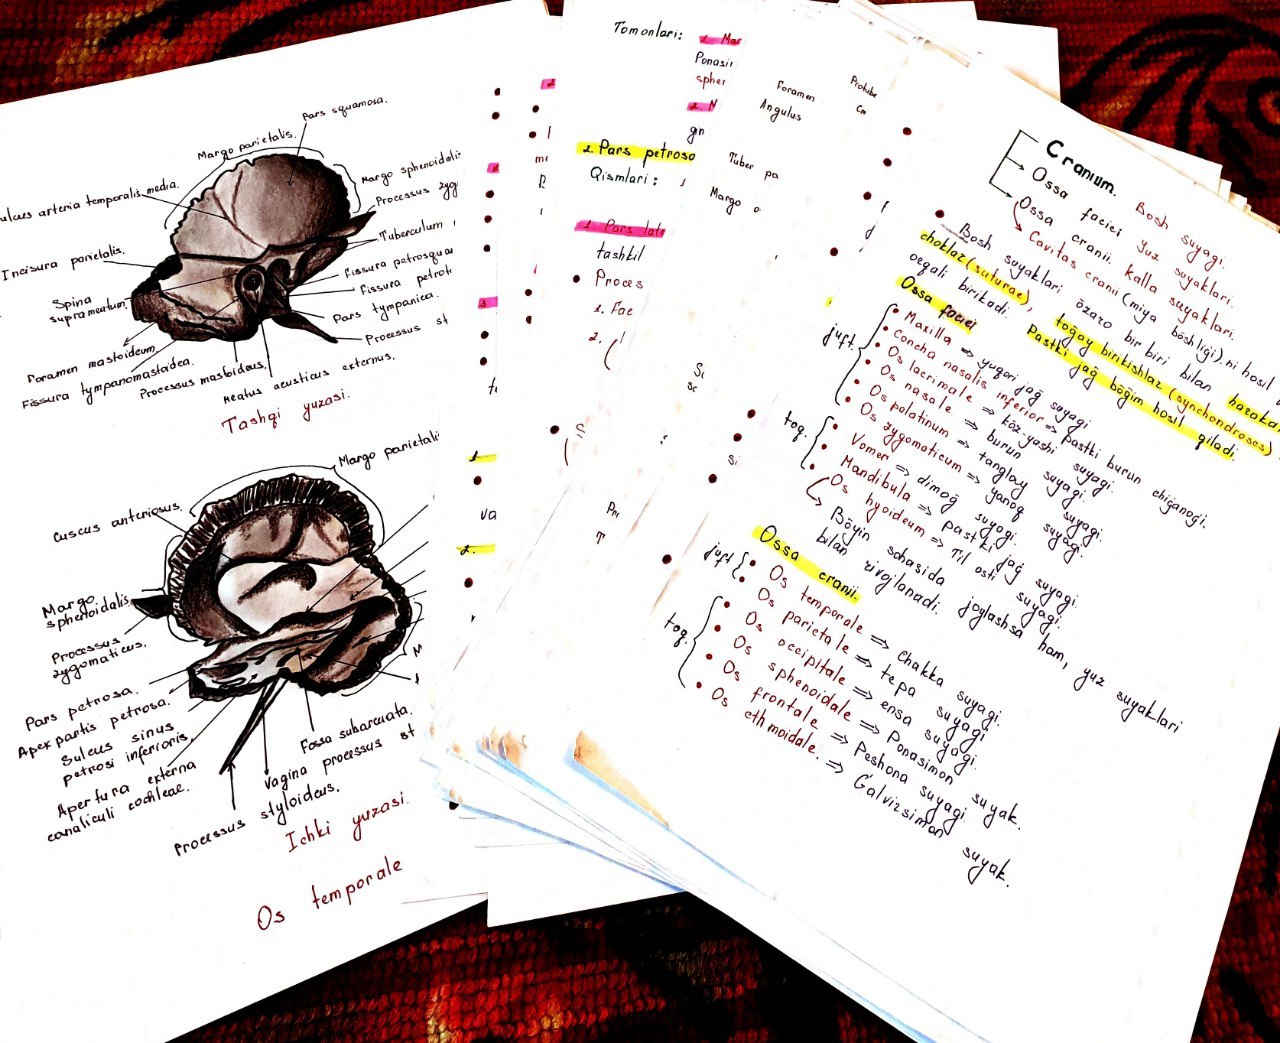 Pars squamosa.
Margo parietalis.
Margo sphenoidali
sulcus arteria temporalis media.
Processus zyg
Tuberculum
Incisura parietalis.
Fissura petrosqua
Fissura petrot
Spina
suprameatum.
Pars tympanica.
Processus st
Foramen mastoideum
Fissura tympanomastoidea.
Processus mastoideus.
Meatus acusticus externus.
Tashqi yuzasi.
Margo parietali
Margo
sphenoidalis.
Processus
zygomaticus.
Pars petrosa.
Apex partis petrosa.
Sulcus sinus
petrosi inferioris
Apertura externa
canaliculi cochleae.
Fossa subarcuata.
Vagina processus st
Processus styloideus.
Ichki yuzasi.
Os temporale
Tomonlari:
1. Mar
Ponasi
sphe
2.
2. Pars petrosa
Qismlari:
1. Pars late
tashkil
Proces
1. Fac
2.
Foramen
Angulus
Tuber pa
Margo
Protube
Cranium. Bosh suyagi.
Ossa faciei Yuz suyaklari.
Ossa cranii. Kalla suyaklari.
Cavitas cranii (miya bòshliģi).ni hosil
Bosh suyaklari òzaro bir biri bilan harakat
choklar (suturae), toģay birikishlar (synchondroses)
orqali birikadi. Pastki jaģ bòģim hosil qiladi.
Ossa faciei
juft.
Maxilla => yuqori jaģ suyagi
Concha nasalis inferior => pastki burun chiģanoģi.
Os lacrimale => kòz yoshi suyagi.
Os nasale => burun suyagi.
Os palatinum => tanglay suyagi.
Os zygomaticum => yanoq suyagi.
toq.
Vomer => dimoģ suyagi.
Mandibula => pastki jaģ suyagi.
Os hyoideum => Til osti suyagi.
Bòyin sohasida joylashsa ham, yuz suyaklari
bilan rivojlanadi.
Ossa cranii.
juft
Os temporale => chakka suyagi.
Os parietale => tepa suyagi
toq.
Os occipitale => ensa suyagi.
Os sphenoidale => Ponasimon suyak.
Os frontale => Peshona suyagi
Os ethmoidale. => Ģalvirsimon suyak.